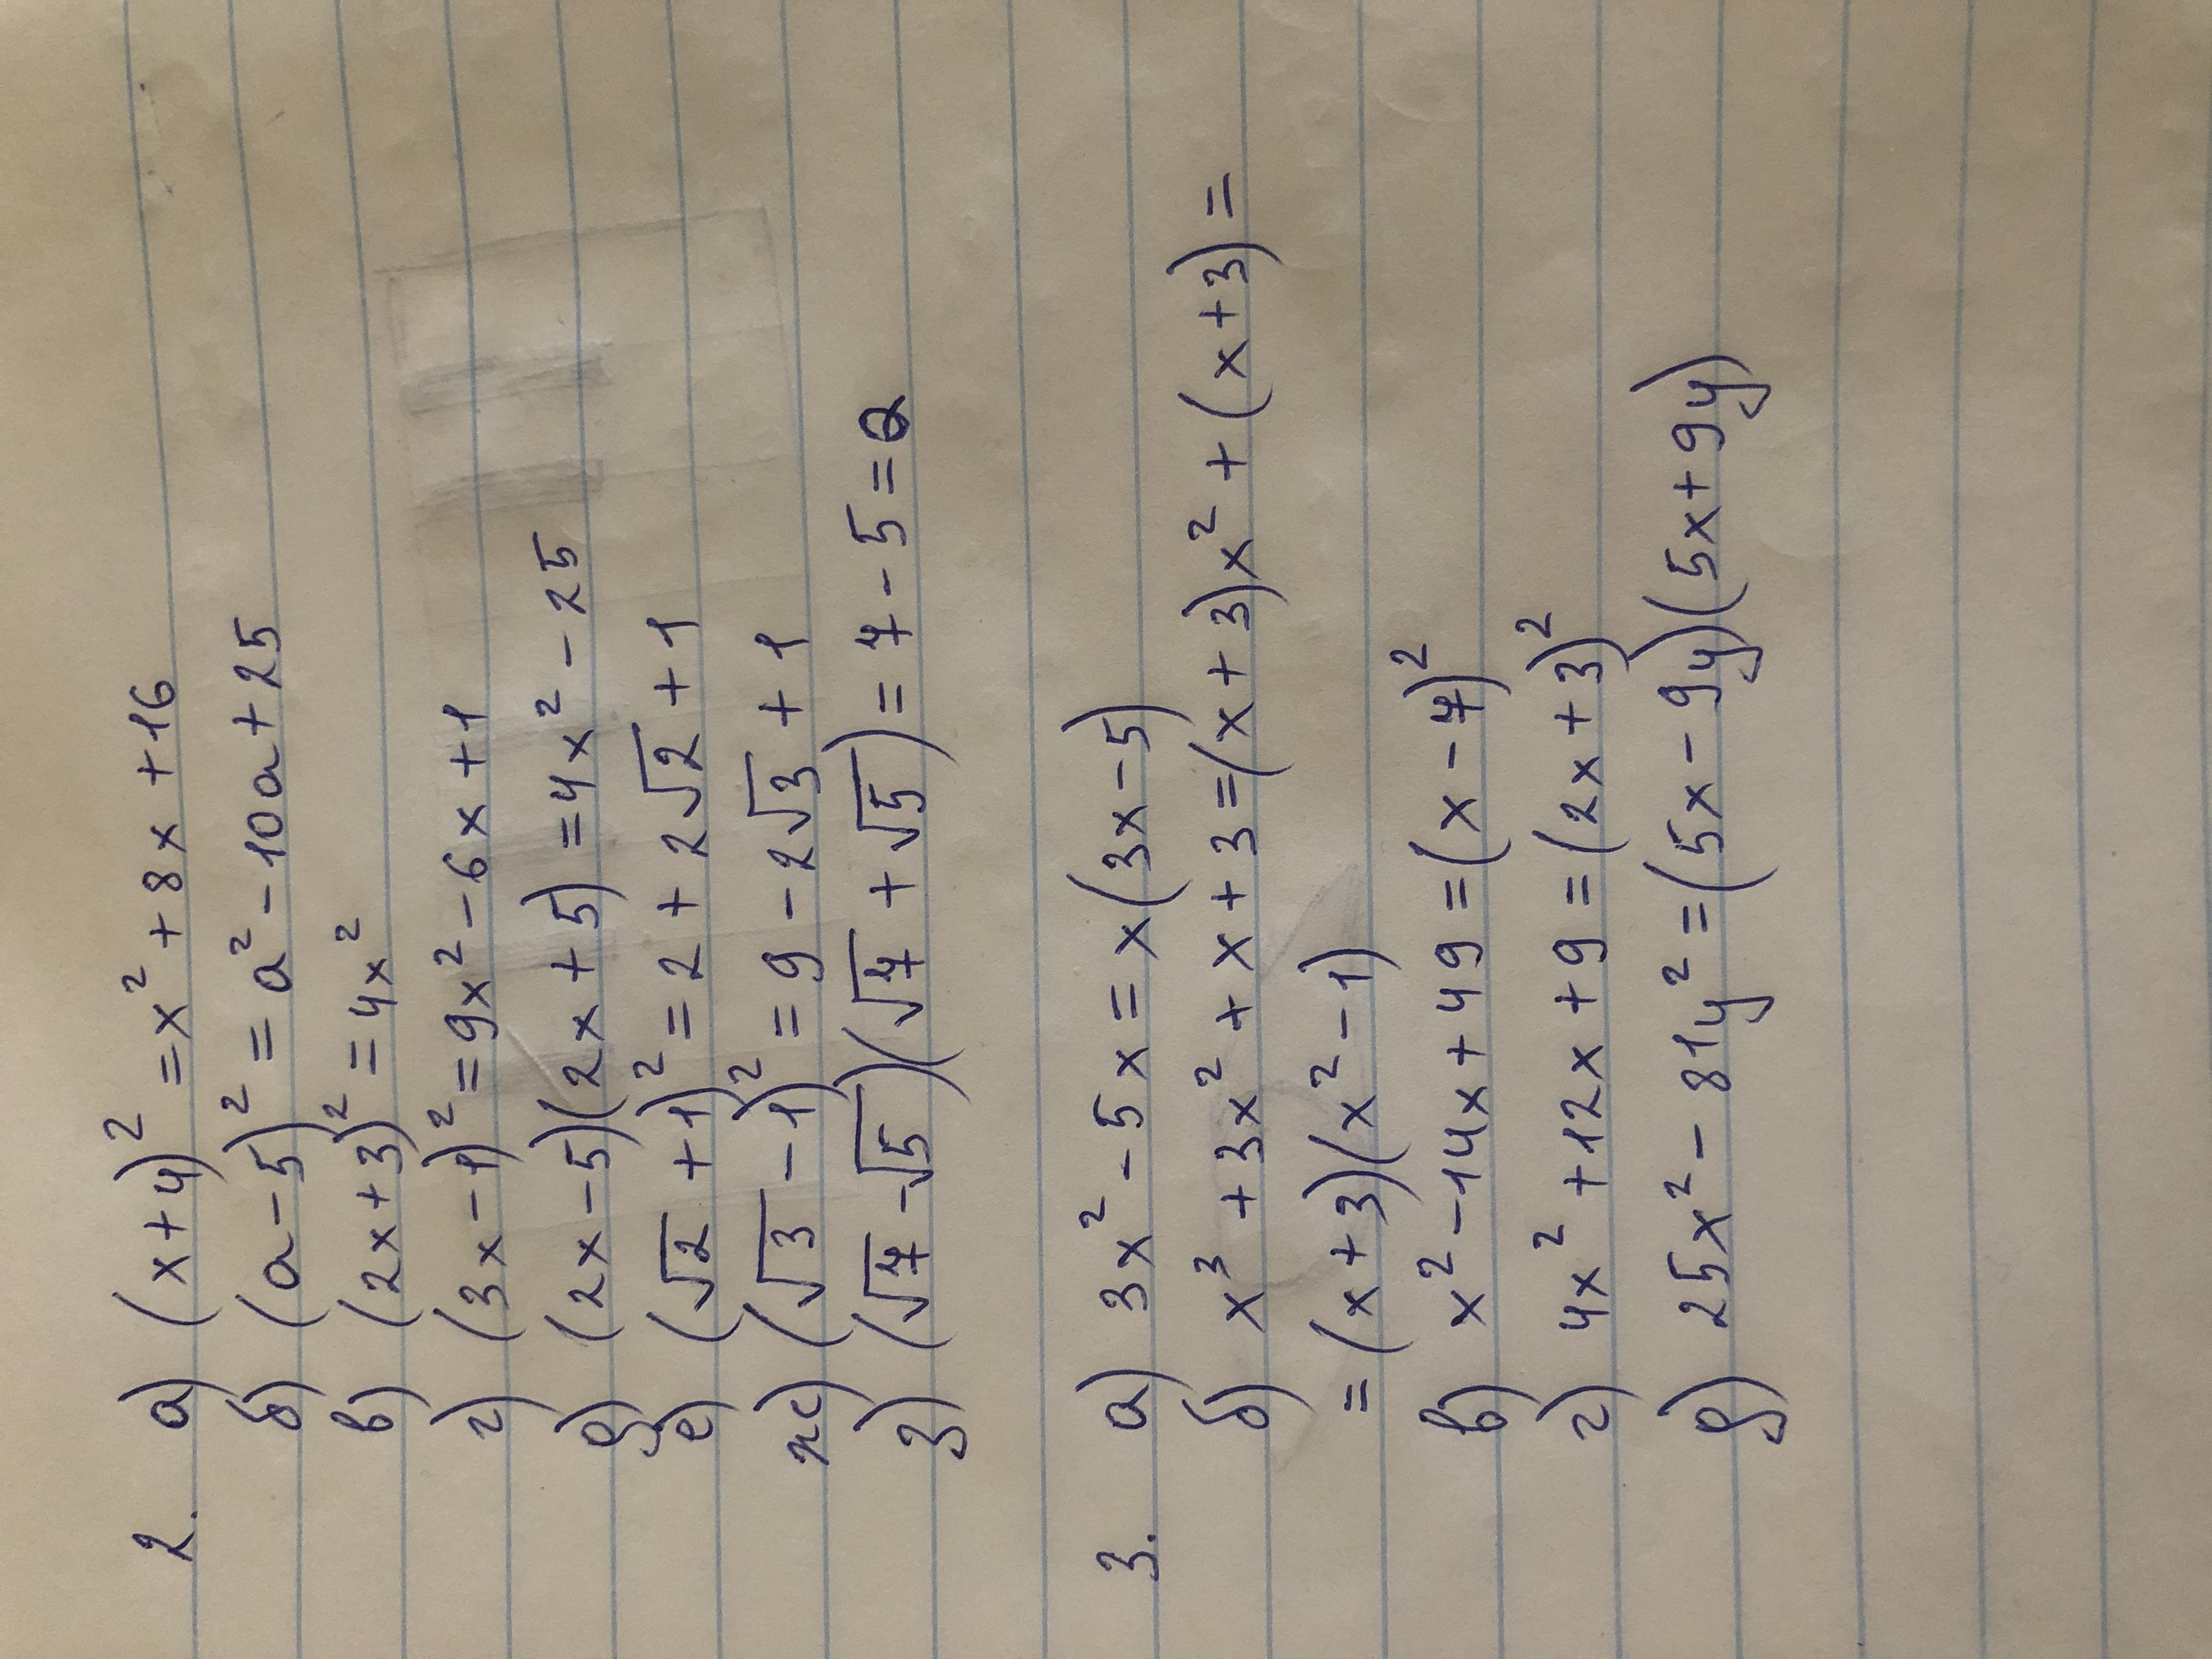 2. а) (x+4)² = x² + 8x + 16
б) (a-5)² = a² - 10a + 25
в) (2x+3)² = 4x²
г) (3x-1)² = 9x² - 6x + 1
д) (2x-5)(2x+5) = 4x² - 25
е) (√2 + 1)² = 2 + 2√2 + 1
ж) (√3 - 1)² = 9 - 2√3 + 1
з) (√7 - √5)(√7 + √5) = 7 - 5 = 2
3. а) 3x² - 5x = x(3x-5)
б) x³ + 3x² + x + 3 = (x+3)x² + (x+3) =
= (x+3)(x²-1)
в) x² - 14x + 49 = (x-7)²
г) 4x² + 12x + 9 = (2x+3)²
д) 25x² - 81y² = (5x-9y)(5x+9y)